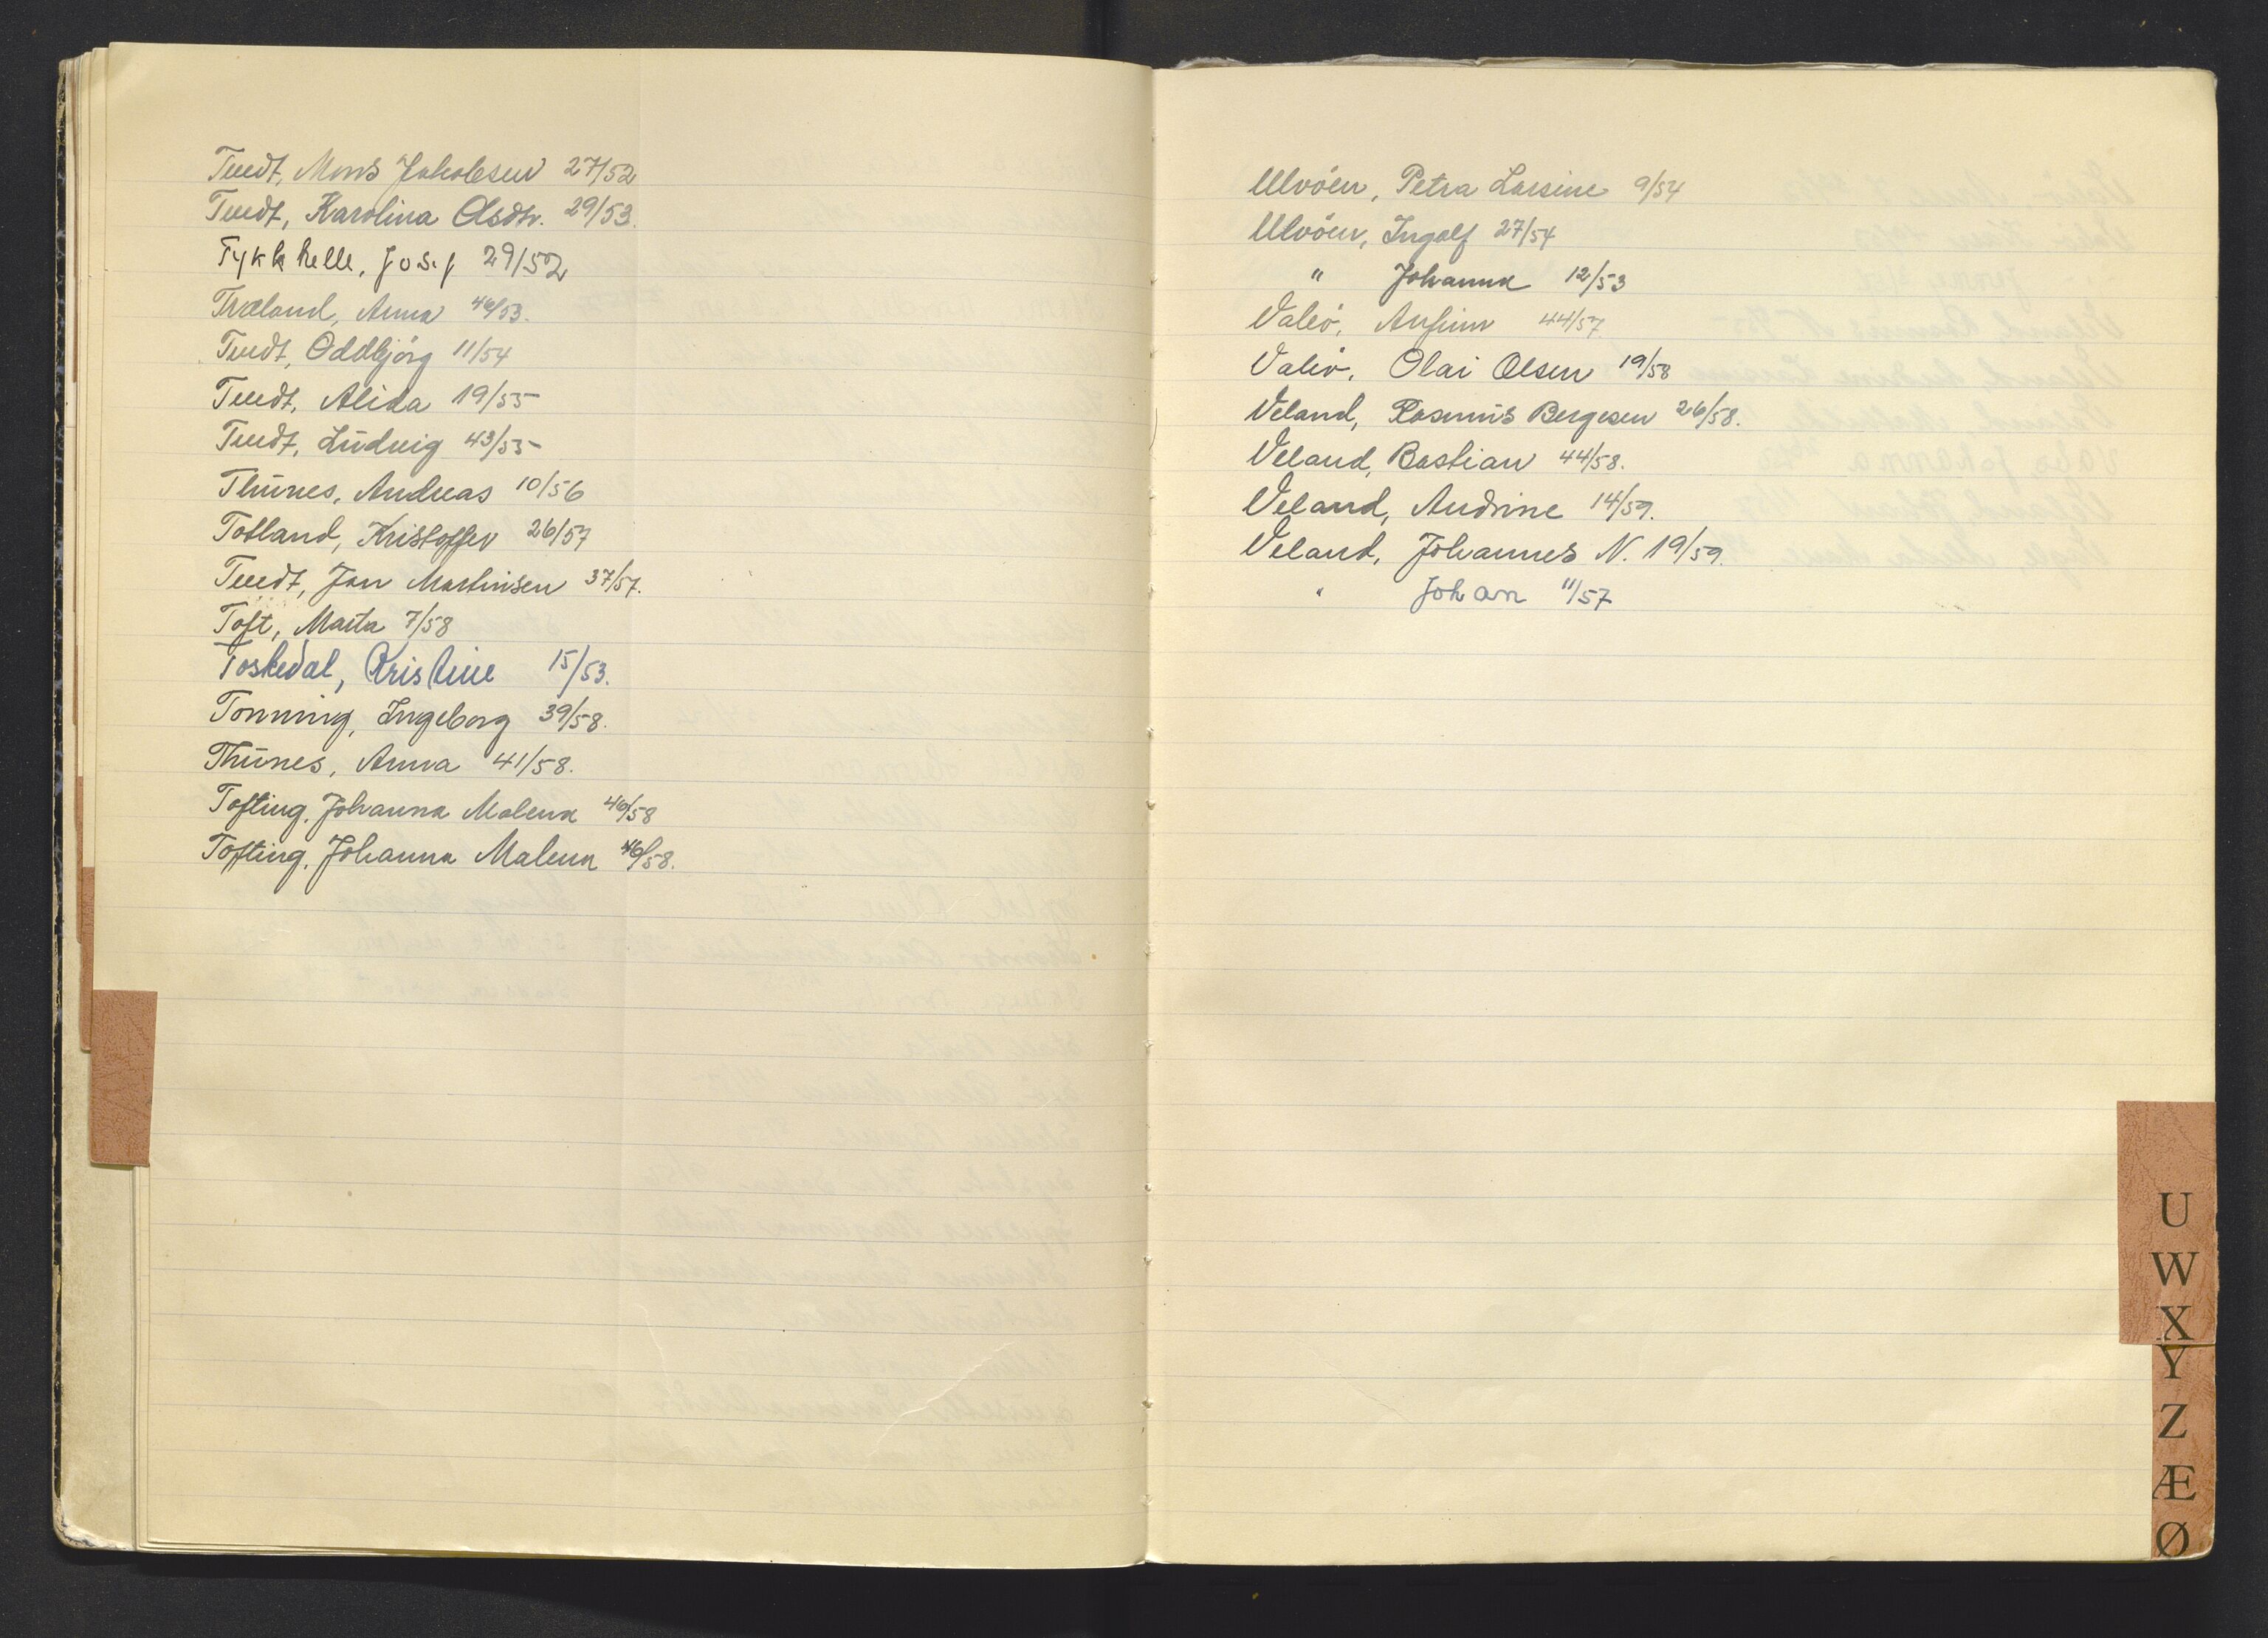 Tuedt, Mons Jakobsen 27/52
Tuedt, Karolina Olsdtr. 29/53.
Tykkhelle, Josef 29/52
Træland, Anna 46/53.
Tuedt, Oddbjörg 11/54
Tuedt, Alida 19/55
Tuedt, Ludvig 43/55
Thunes, Andreas 10/56
Totland, Kristoffer 26/57
Tuedt, Jan Martinsen 37/57.
Toft, Marta 7/58
Toskedal, Kristine 15/53.
Tonning, Ingeborg 39/58.
Thunes, Anna 41/58.
Tofting, Johanna Malena 46/58
Tofting, Johanna Malena 46/58.
Ulvöen, Petra Larsine 9/54
Ulvöen, Ingolf 27/54
" Johanna 12/53
Valö, Anfinn 44/57
Valö, Olai Olsen 19/58
Veland, Rasmus Bergesen 26/58.
Veland, Bastian 44/58.
Veland, Andrine 14/59.
Veland, Johannes N. 19/59.
" Johan 11/57
U
W
X
Y
Z
Æ
Ø